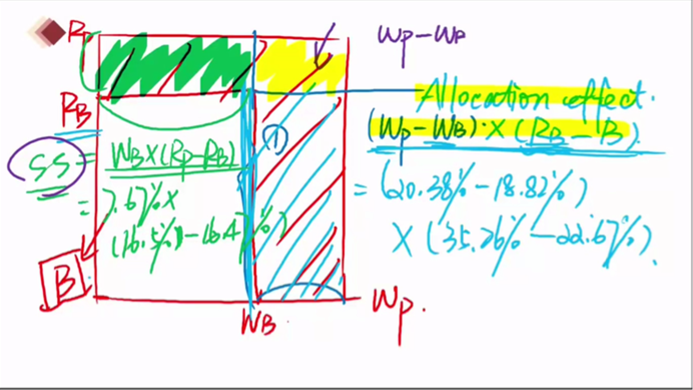 Rp
Wp-Wp
RB
Allocation effect.
(Wp-WB)·X(RB-B)
①
SS = WB X(Rp-RB)
= 7.67% X
(16.5%)-16.47%)
= (20.38%-18.82%)
X (35.26%-22.67%).
B
WB
Wp.